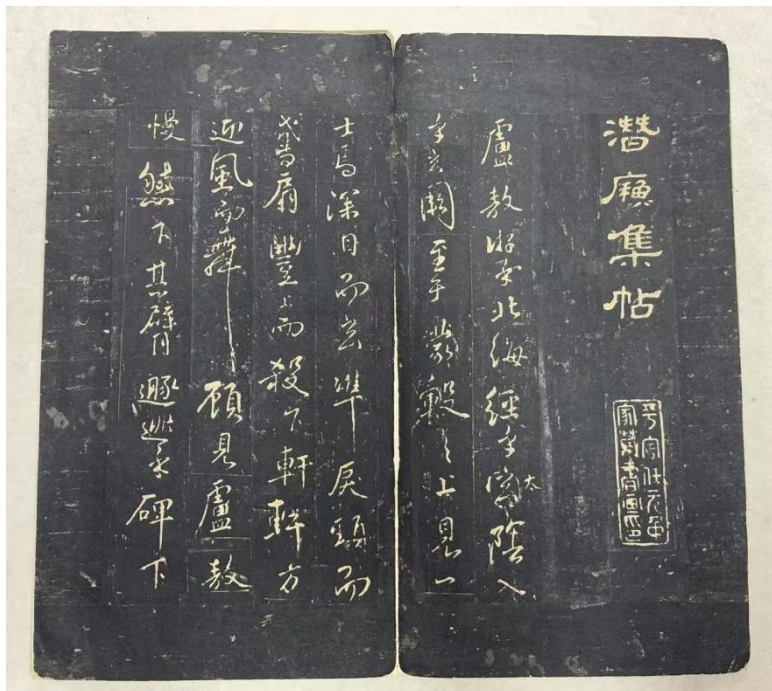 潛廎集帖
家藏書畫印
盧敖游乎北海經乎太陰入
乎玄闕至乎蒙轂之上見一
士焉深目而玄準戾頸而
鳶肩豐上而殺下軒軒方
迎風而舞顧見盧敖
慢然下其臂遯逃乎碑下